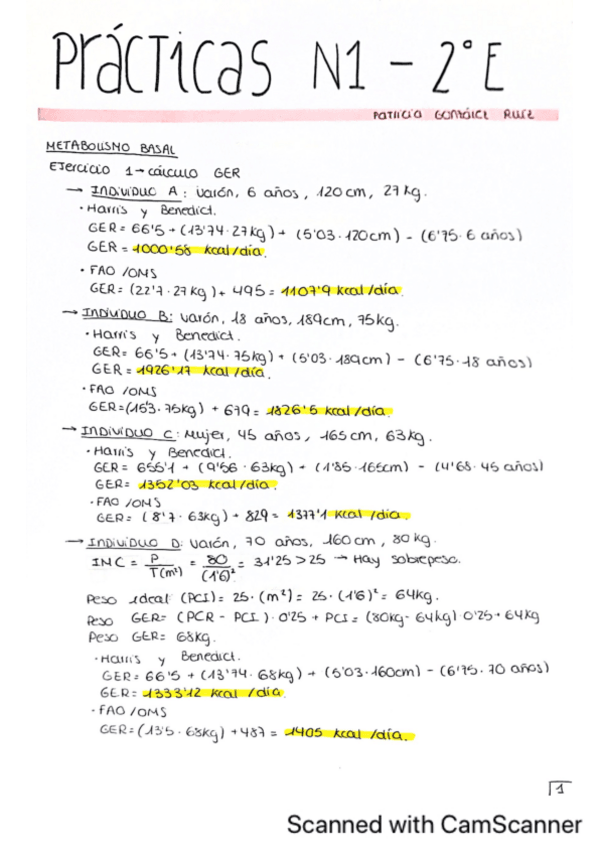 Prácticas N1 - 2° E
Patricia González Ruiz
METABOLISMO BASAL
Ejercicio 1 → cálculo GER
→ INDIVIDUO A: Varón, 6 años, 120cm, 27kg.
· Harris y Benedict.
GER = 66'5 + (13'74 · 27kg) + (5'03 · 120cm) - (6'75 · 6 años)
GER = 1000'58 kcal/día.
· FAO /OMS
GER = (22'7 · 27kg) + 495 = 1107'9 kcal/día.
→ INDIVIDUO B: Varón, 18 años, 189cm, 75kg.
· Harris y Benedict.
GER = 66'5 + (13'74 · 75kg) + (5'03 · 189cm) - (6'75 · 18 años)
GER = 1926'17 kcal/día.
· FAO /OMS
GER = (15'3 · 75kg) + 679 = 1826'5 kcal/día.
→ INDIVIDUO C: Mujer, 45 años, 165cm, 63kg.
· Harris y Benedict.
GER = 655'1 + (9'56 · 63kg) + (1'85 · 165cm) - (4'68 · 45 años)
GER = 1352'03 kcal/día.
· FAO /OMS
GER = (8'7 · 63kg) + 829 = 1377'1 kcal/día.
→ INDIVIDUO D: Varón, 70 años, 160cm, 80kg.
IMC = P / T(m²) = 80 / (1'6)² = 31'25 > 25 → Hay sobrepeso.
Peso ideal (PCI) = 25 · (m²) = 25 · (1'6)² = 64kg.
Peso GER = (PCR - PCI) · 0'25 + PCI = (80kg - 64kg) 0'25 + 64kg
Peso GER = 68kg.
· Harris y Benedict.
GER = 66'5 + (13'74 · 68kg) + (5'03 · 160cm) - (6'75 · 70 años)
GER = 1333'12 kcal/día.
· FAO /OMS
GER = (13'5 · 68kg) + 487 = 1405 kcal/día.
1
Scanned with CamScanner